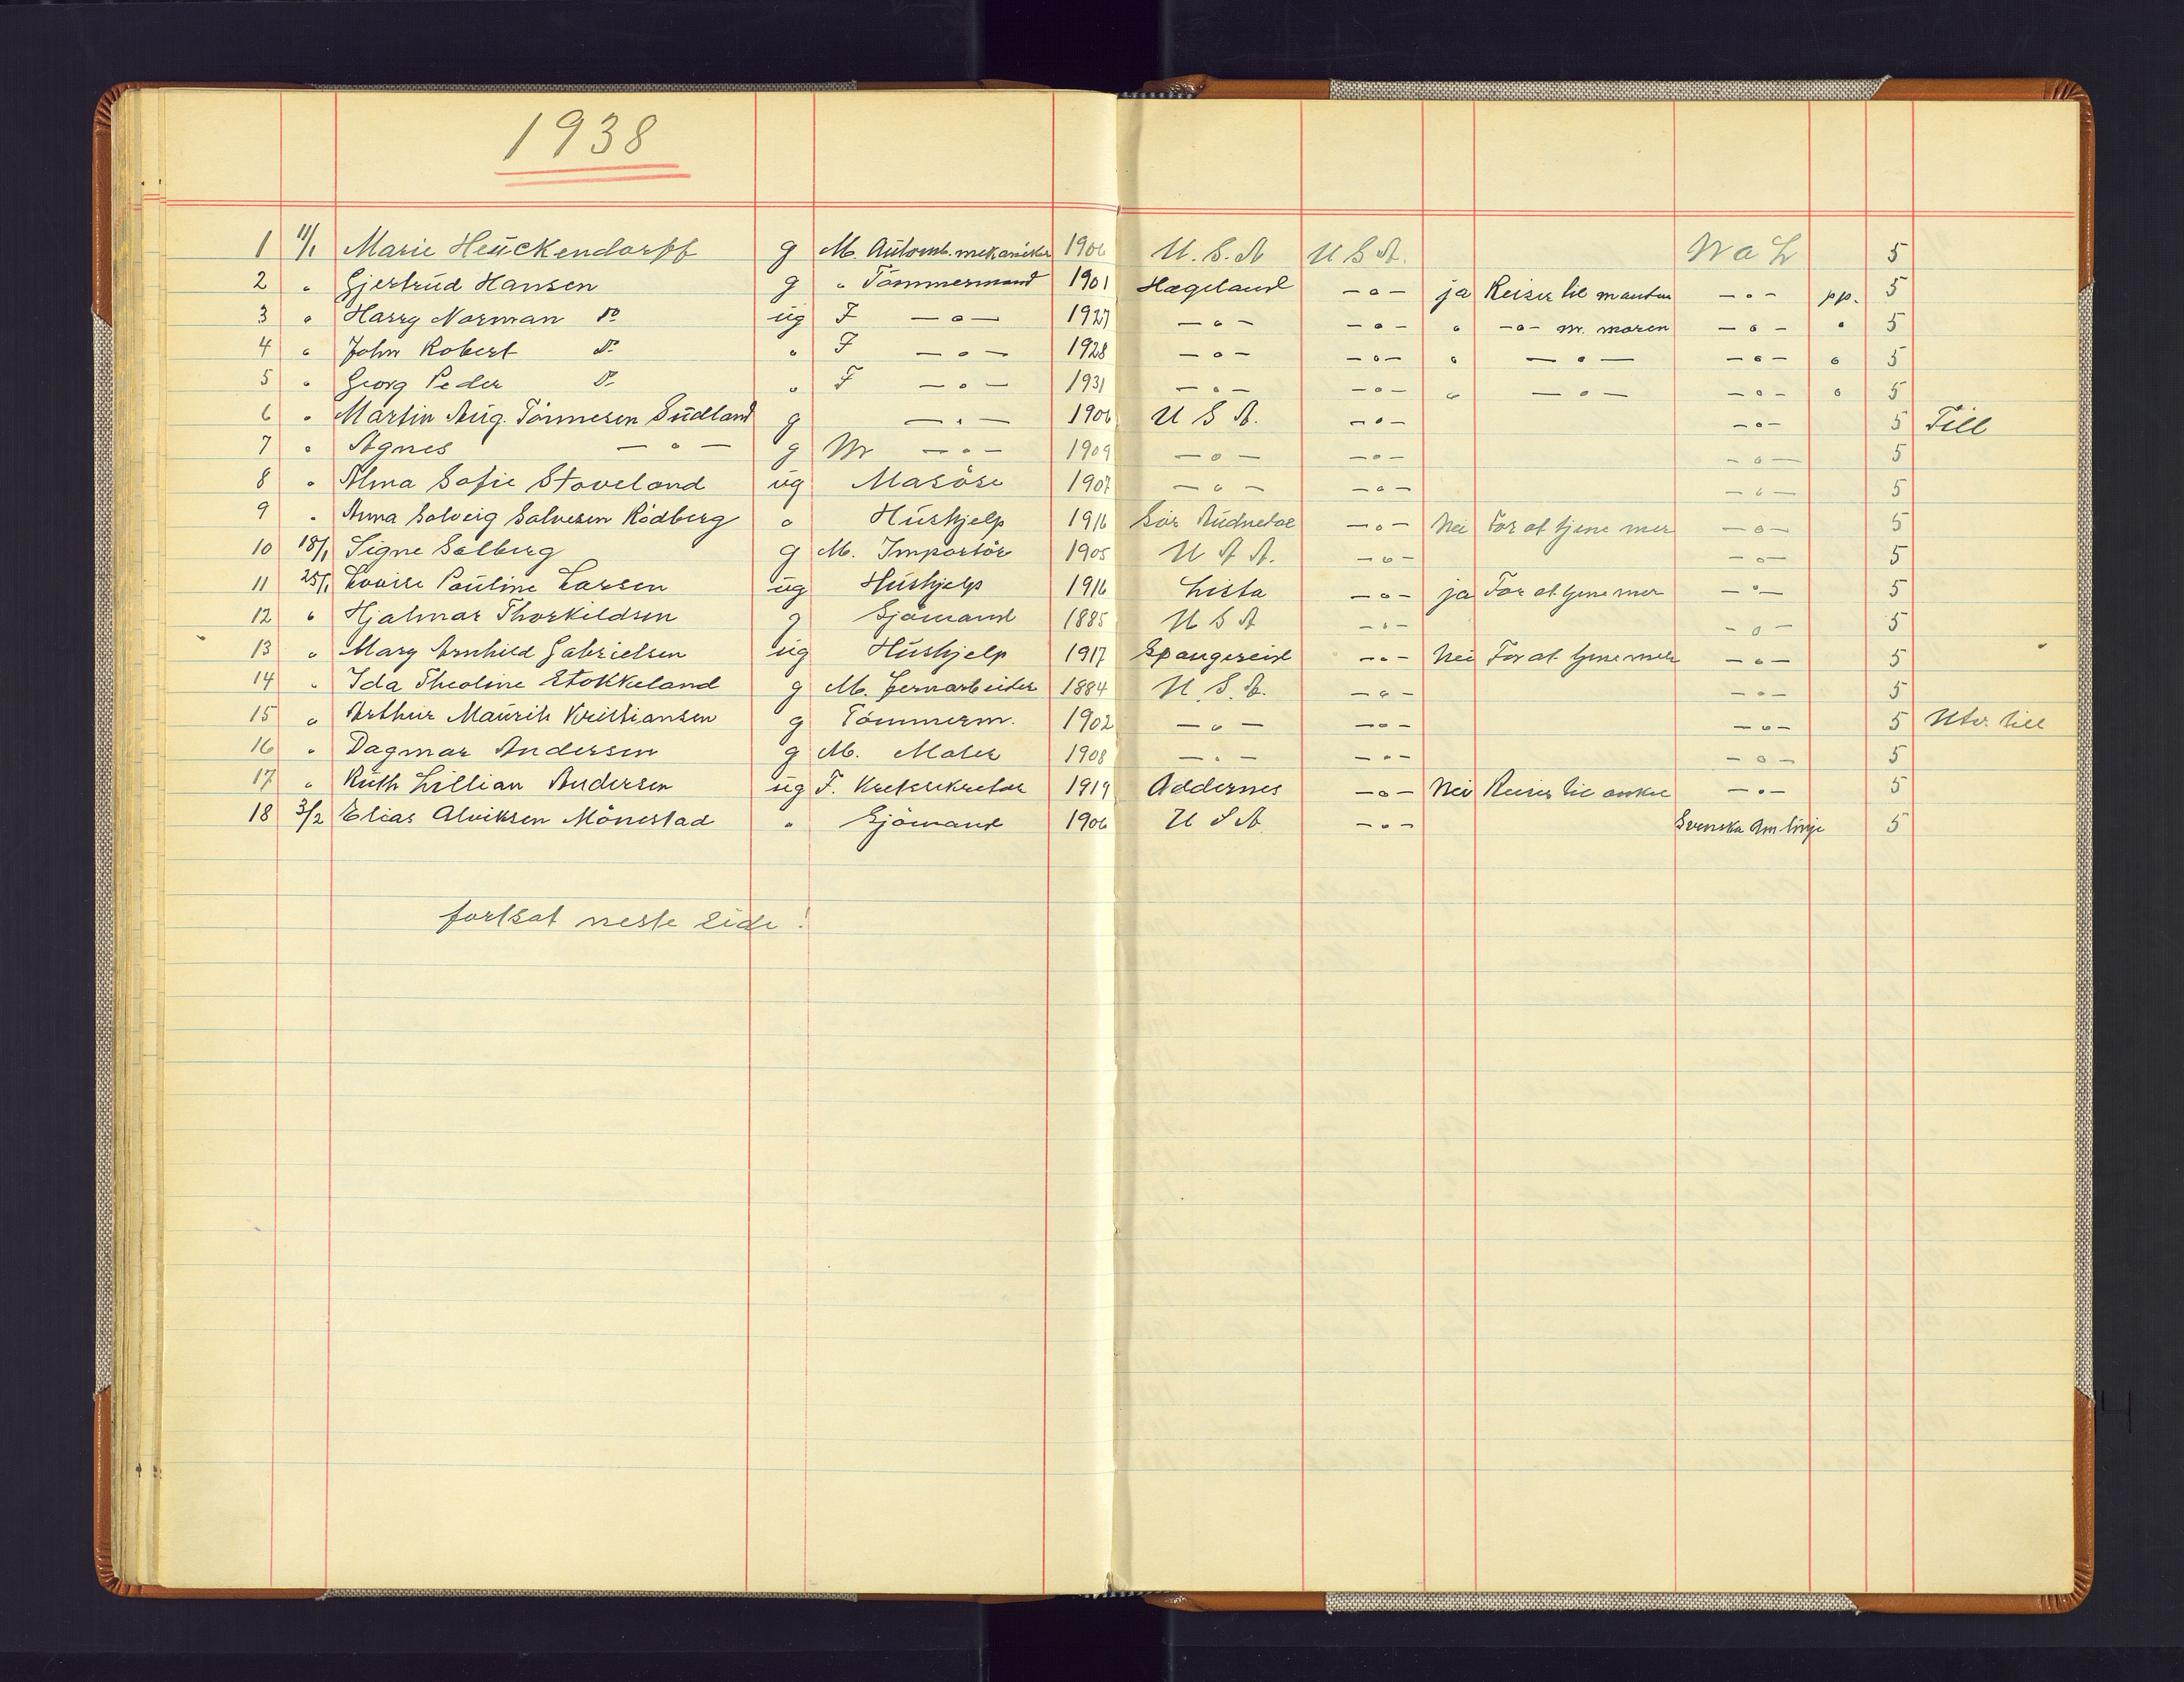 1938
1 11/1 Marie Heuckendorff g M. Automb. mekaniker 1906 U.S.A U S A. N a L 5
2 " Gjertrud Hansen g " Tömmermand 1901 Hægeland —o— ja Reiser til manden —o— pp. 5
3 " Harry Norman Do ug F —o— 1927 —o— —o— " —o— m. moren —o— " 5
4 " John Robert Do " F —o— 1928 —o— —o— " —o— —o— " 5
5 " Georg Peder Do " F —o— 1931 —o— —o— " —o— —o— " 5
6 " Martin Aug. Tönnesen Sudland g —o— 1906 U S A. —o— —o— 5 Till
7 " Agnes —o— g M —o— 1909 —o— —o— —o— 5
8 " Alma Sofie Stoveland ug Masöse 1907 —o— —o— —o— 5
9 " Anna Solveig Salvesen Rödberg " Hushjelp 1916 Sör Audnedal —o— Nei For at tjene mer —o— 5
10 18/1 Signe Solberg g M. Importör 1905 U S A. —o— —o— 5
11 25/1 Lovise Pauline Larsen ug Hushjelp 1916 Lista —o— ja For at tjene mer —o— 5
12 " Hjalmar Thorkildsen g Sjömand 1885 U S A —o— —o— 5
13 " Mary Arnhild Gabrielsen ug Hushjelp 1917 Spangereid —o— Nei For at tjene mer —o— 5
14 " Ida Theoline Stokkeland g M. Jernarbeider 1884 U.S.A. —o— —o— 5
15 " Arthur Mauritz Kristiansen g Tömmerm. 1902 —o— —o— —o— 5 Utv. till
16 " Dagmar Andersen g M. Maler 1908 —o— —o— —o— 5
17 " Ruth Lillian Andersen ug F. 1919 Oddernes —o— Nei Reiser til onkel —o— 5
18 3/2 Elias Alviksen Mönestad " Sjömand 1906 U S A. —o— Svenska Am linje 5
fortsat neste side!